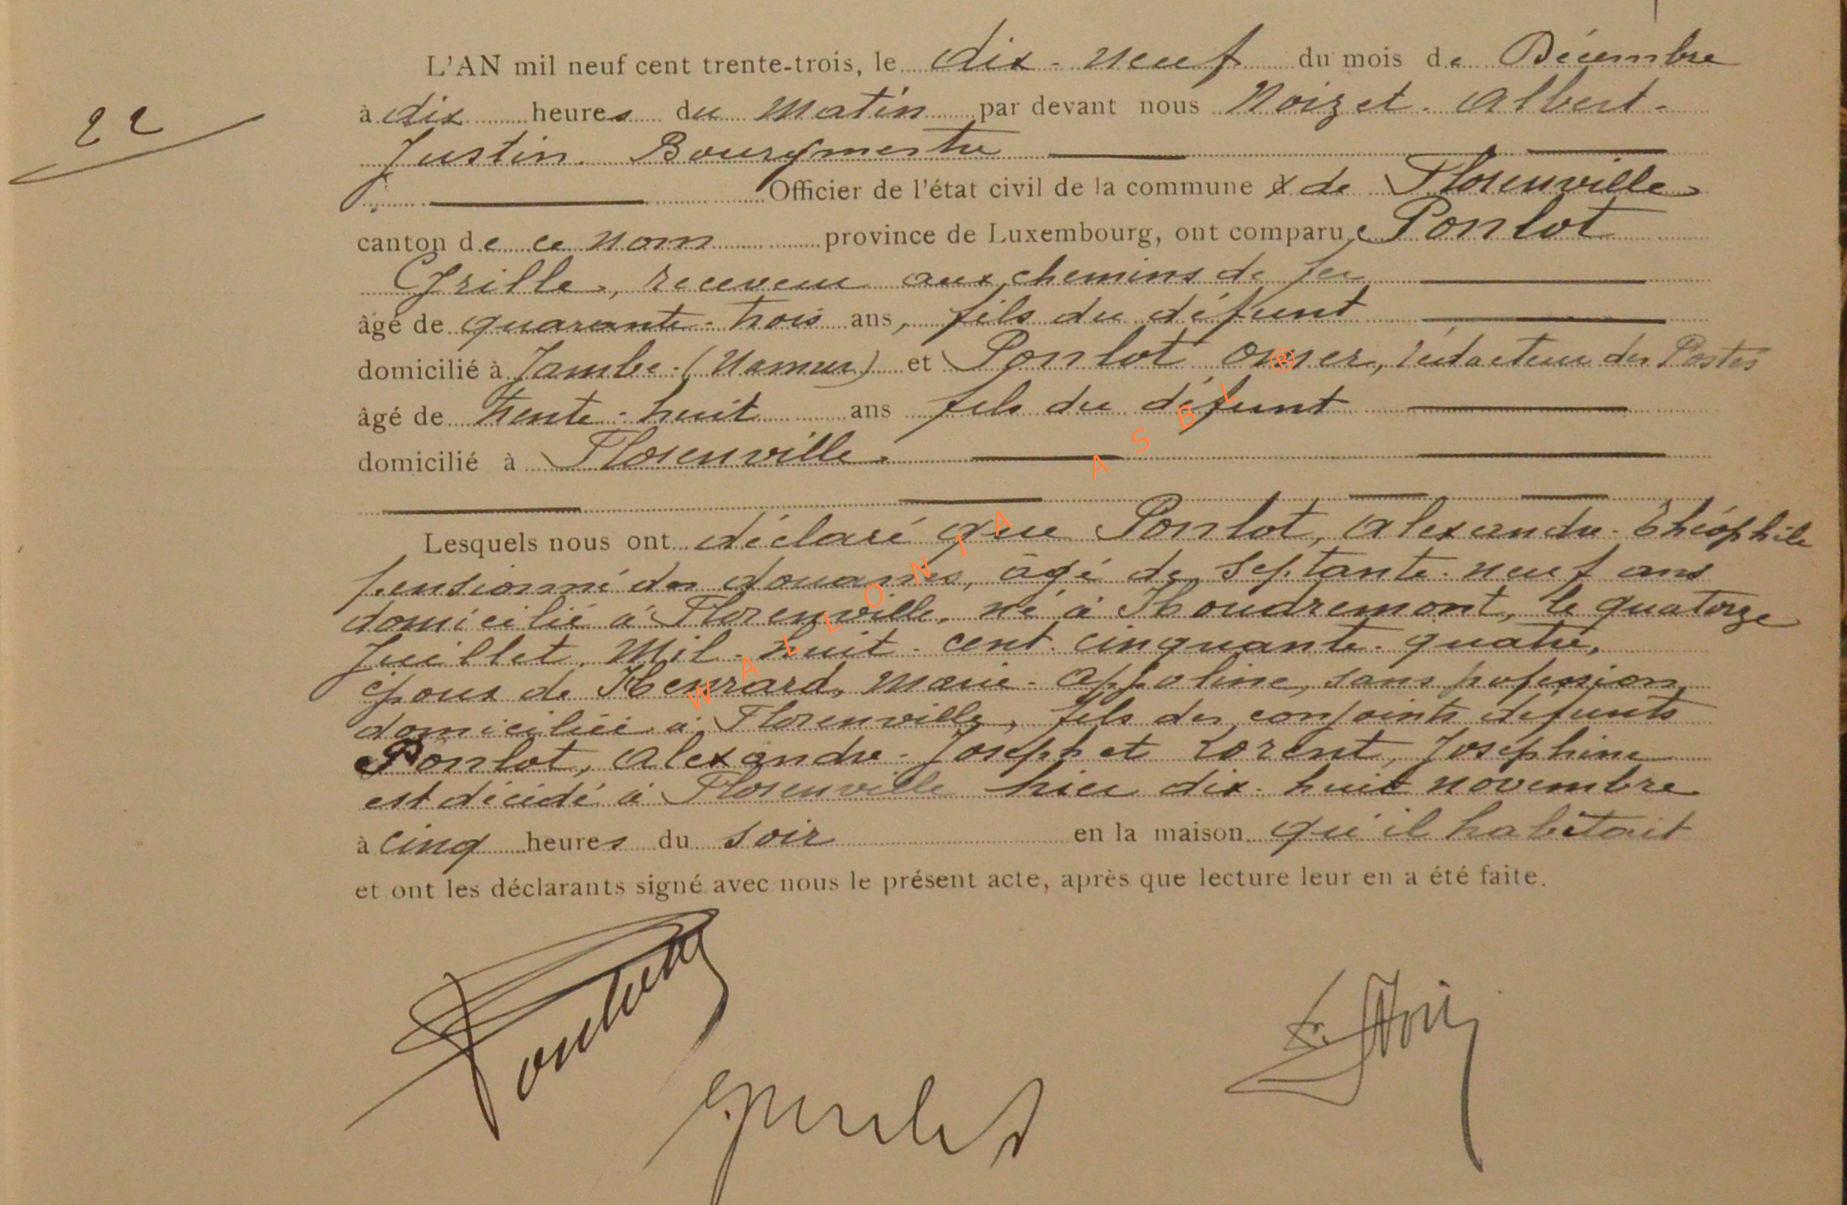 L'AN mil neuf cent trente-trois, le dix-neuf du mois de Décembre
22
à dix heures du matin par devant nous Noizet Albert-
Justin Bourgmestre
Officier de l'état civil de la commune de Florenville
canton de ce nom province de Luxembourg, ont comparu Ponlot
receveur aux chemins de fer
âgé de quarante-trois ans, fils du défunt
domicilié à Jambe (Namur) et Ponlot Omer, rédacteur des Postes
âgé de trente-huit ans fils du défunt
domicilié à Florenville
Lesquels nous ont déclaré que Ponlot, Alexandre-Théophile
pensionné des douanes, âgé de septante-neuf ans
domicilié à Florenville, né à Houdremont, le quatorze
Juillet Mil-huit-cent cinquante-quatre,
époux de Henrard, Marie-Appoline, sans profession
domiciliée à Florenville, fils des conjoints défunts
Ponlot, Alexandre-Joseph et Lorent, Joséphine
est décédé à Florenville hier dix-huit novembre
à cinq heures du soir en la maison qu'il habitait
et ont les déclarants signé avec nous le présent acte, après que lecture leur en a été faite.
WALLONIA ASBL